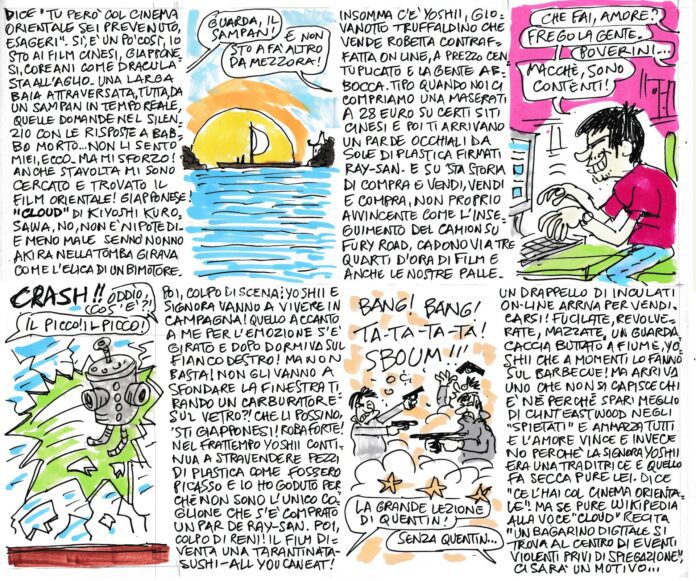 DICE "TU PERÒ COL CINEMA
ORIENTALE SEI PREVENUTO,
ESAGERI". SÌ, E' UN PO' COSÌ, IO
STO AI FILM CINESI, GIAPPONE
SI, COREANI COME DRACULA
STA ALL'AGLIO. UNA LARGA
BAIA ATTRAVERSATA, TUTTA, DA
UN SAMPAN IN TEMPO REALE,
QUELLE DOMANDE NEL SILEN
ZIO CON LE RISPOSTE A BAB
BO MORTO... NON LI SENTO
MIEI, ECCO. MA MI SFORZO!
ANCHE STAVOLTA MI SONO
CERCATO E TROVATO IL
FILM ORIENTALE! GIAPPONESE!
"CLOUD" DI KIYOSHI KURO,
SAWA, NO, NON E' NIPOTE DI
E MENO MALE SENNÒ NONNO
AKIRA NELLA TOMBA GIRAVA
COME L'ELICA DI UN BIMOTORE.
GUARDA, IL
SAMPAN!
E NON
STO A FA' ALTRO
DA MEZZORA!
INSOMMA C'E' YOSHII, GIO-
VANOTTO TRUFFALDINO CHE
VENDE ROBETTA CONTRAF-
FATTA ON LINE, A PREZZO CEN
TUPLICATO E LA GENTE AB-
BOCCA. TIPO QUANDO NOI CI
COMPRIAMO UNA MASERATI
A 28 EURO SU CERTI SITI
CINESI E POI TI ARRIVANO
UN PAR DE OCCHIALI DA
SOLE DI PLASTICA FIRMATI
RAY-SAN. E SU STA STORIA
DI COMPRA E VENDI, VENDI
E COMPRA, NON PROPRIO
AVVINCENTE COME L'INSE-
GUIMENTO DEL CAMION SU
FURY ROAD, CADONO VIA TRE
QUARTI D'ORA DI FILM E
ANCHE LE NOSTRE PALLE.
CHE FAI, AMORE?
FREGO LA GENTE.
POVERINI...
MACCHÈ, SONO
CONTENTI!
CRASH!!
ODDIO,
COS'E'?!
IL PICCO! IL PICCO!
POI, COLPO DI SCENA: YOSHII E
SIGNORA VANNO A VIVERE IN
CAMPAGNA! QUELLO ACCANTO
A ME PER L'EMOZIONE S'E'
GIRATO E DOPO DORMIVA SUL
FIANCO DESTRO! MA NON
BASTA! NON GLI VANNO A
SFONDARE LA FINESTRA TI
RANDO UN CARBURATORE
SUL VETRO?! CHE LI POSSINO,
'STI GIAPPONESI! ROBA FORTE!
NEL FRATTEMPO YOSHII CONTI
NUA A STRAVENDERE PEZZI
DI PLASTICA COME FOSSERO
PICASSO E IO HO GODUTO PER
CHÈ NON SONO L'UNICO CO
GLIONE CHE S'E' COMPRATO
UN PAR DE RAY-SAN. POI,
COLPO DI RENI! IL FILM DI
VENTA UNA TARANTINATA-
SUSHI-ALL YOU CAN EAT!
BANG! BANG!
TA-TA-TA-TA!
SBOUM!!!
LA GRANDE LEZIONE
DI QUENTIN!
SENZA QUENTIN...
UN DRAPPELLO DI INCULATI
ON-LINE ARRIVA PER VENDI
CARSI! FUCILATE, REVOLVE
RATE, MAZZATE, UN GUARDA
CACCIA BUTTATO A FIUME, YO
SHII CHE A MOMENTI LO FANNO
SUL BARBECUE! MA ARRIVA
UNO CHE NON SI CAPISCE CHI
E' NÈ PERCHÈ SPARI MEGLIO
DI CLINT EASTWOOD NEGLI
"SPIETATI" E AMMAZZA TUTTI
E L'AMORE VINCE E INVECE
NO PERCHÈ LA SIGNORA YOSHII
ERA UNA TRADITRICE E QUELLO
FA SECCA PURE LEI. DICE
"CE L'HAI COL CINEMA ORIENTA
LE". MA SE PURE WIKIPEDIA
ALLA VOCE "CLOUD" RECITA
"UN BAGARINO DIGITALE SI
TROVA AL CENTRO DI EVENTI
VIOLENTI PRIVI DI SPIEGAZIONE",
CI SARÀ UN MOTIVO...